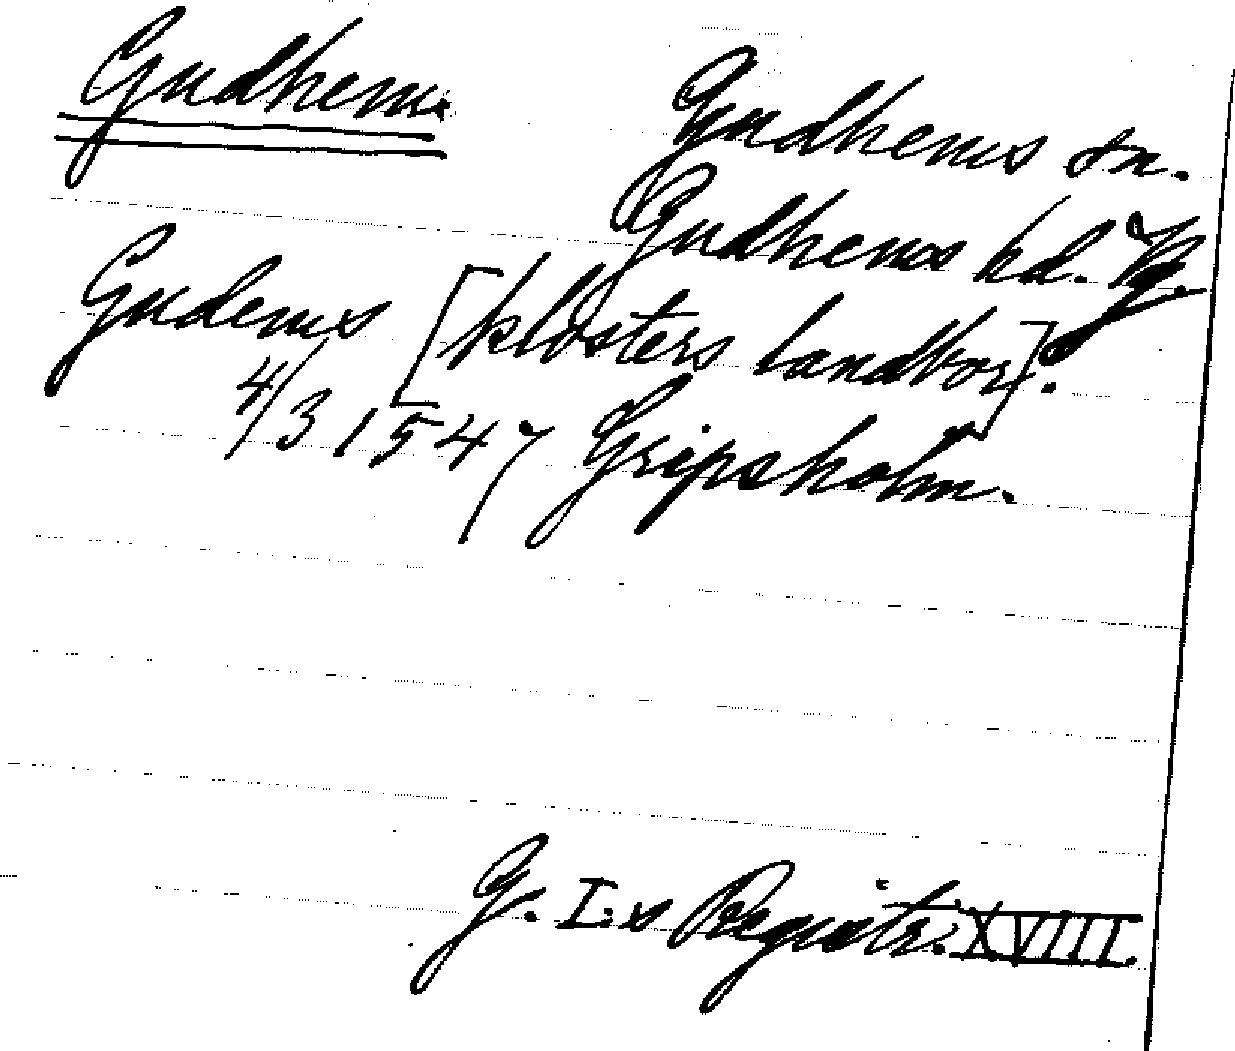 Gudhem.
Gudhems sn.
Gudhems hd. Vg.
Gudems [klosters landbor].
4/3 1547 Gripsholm.
G. I:s Registr. XVIII.